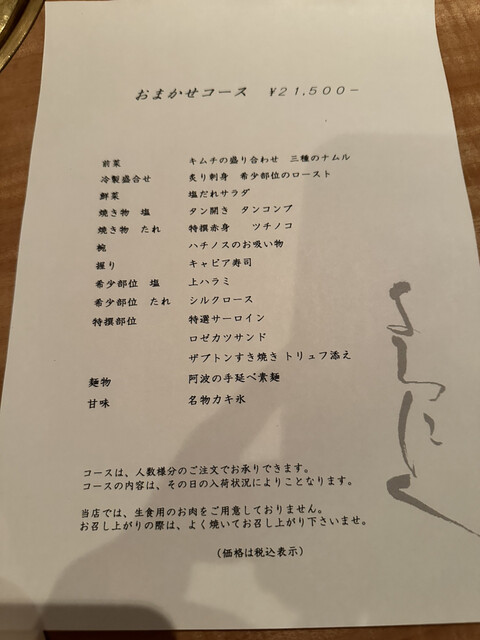 おまかせコース　¥21,500-
前菜　キムチの盛り合わせ　三種のナムル
冷製盛合せ　炙り刺身　希少部位のロースト
鮮菜　塩だれサラダ
焼き物　塩　タン開き　タンコンブ
焼き物　たれ　特撰赤身　ツチノコ
椀　ハチノスのお吸い物
握り　キャビア寿司
希少部位　塩　上ハラミ
希少部位　たれ　シルクロース
特撰部位　特選サーロイン
ロゼカツサンド
ザブトンすき焼き トリュフ添え
麺物　阿波の手延べ素麺
甘味　名物カキ氷
よろにく
コースは、人数様分のご注文でお承りできます。
コースの内容は、その日の入荷状況によりことなります。
当店では、生食用のお肉をご用意しておりません。
お召し上がりの際は、よく焼いてお召し上がり下さいませ。
（価格は税込表示）